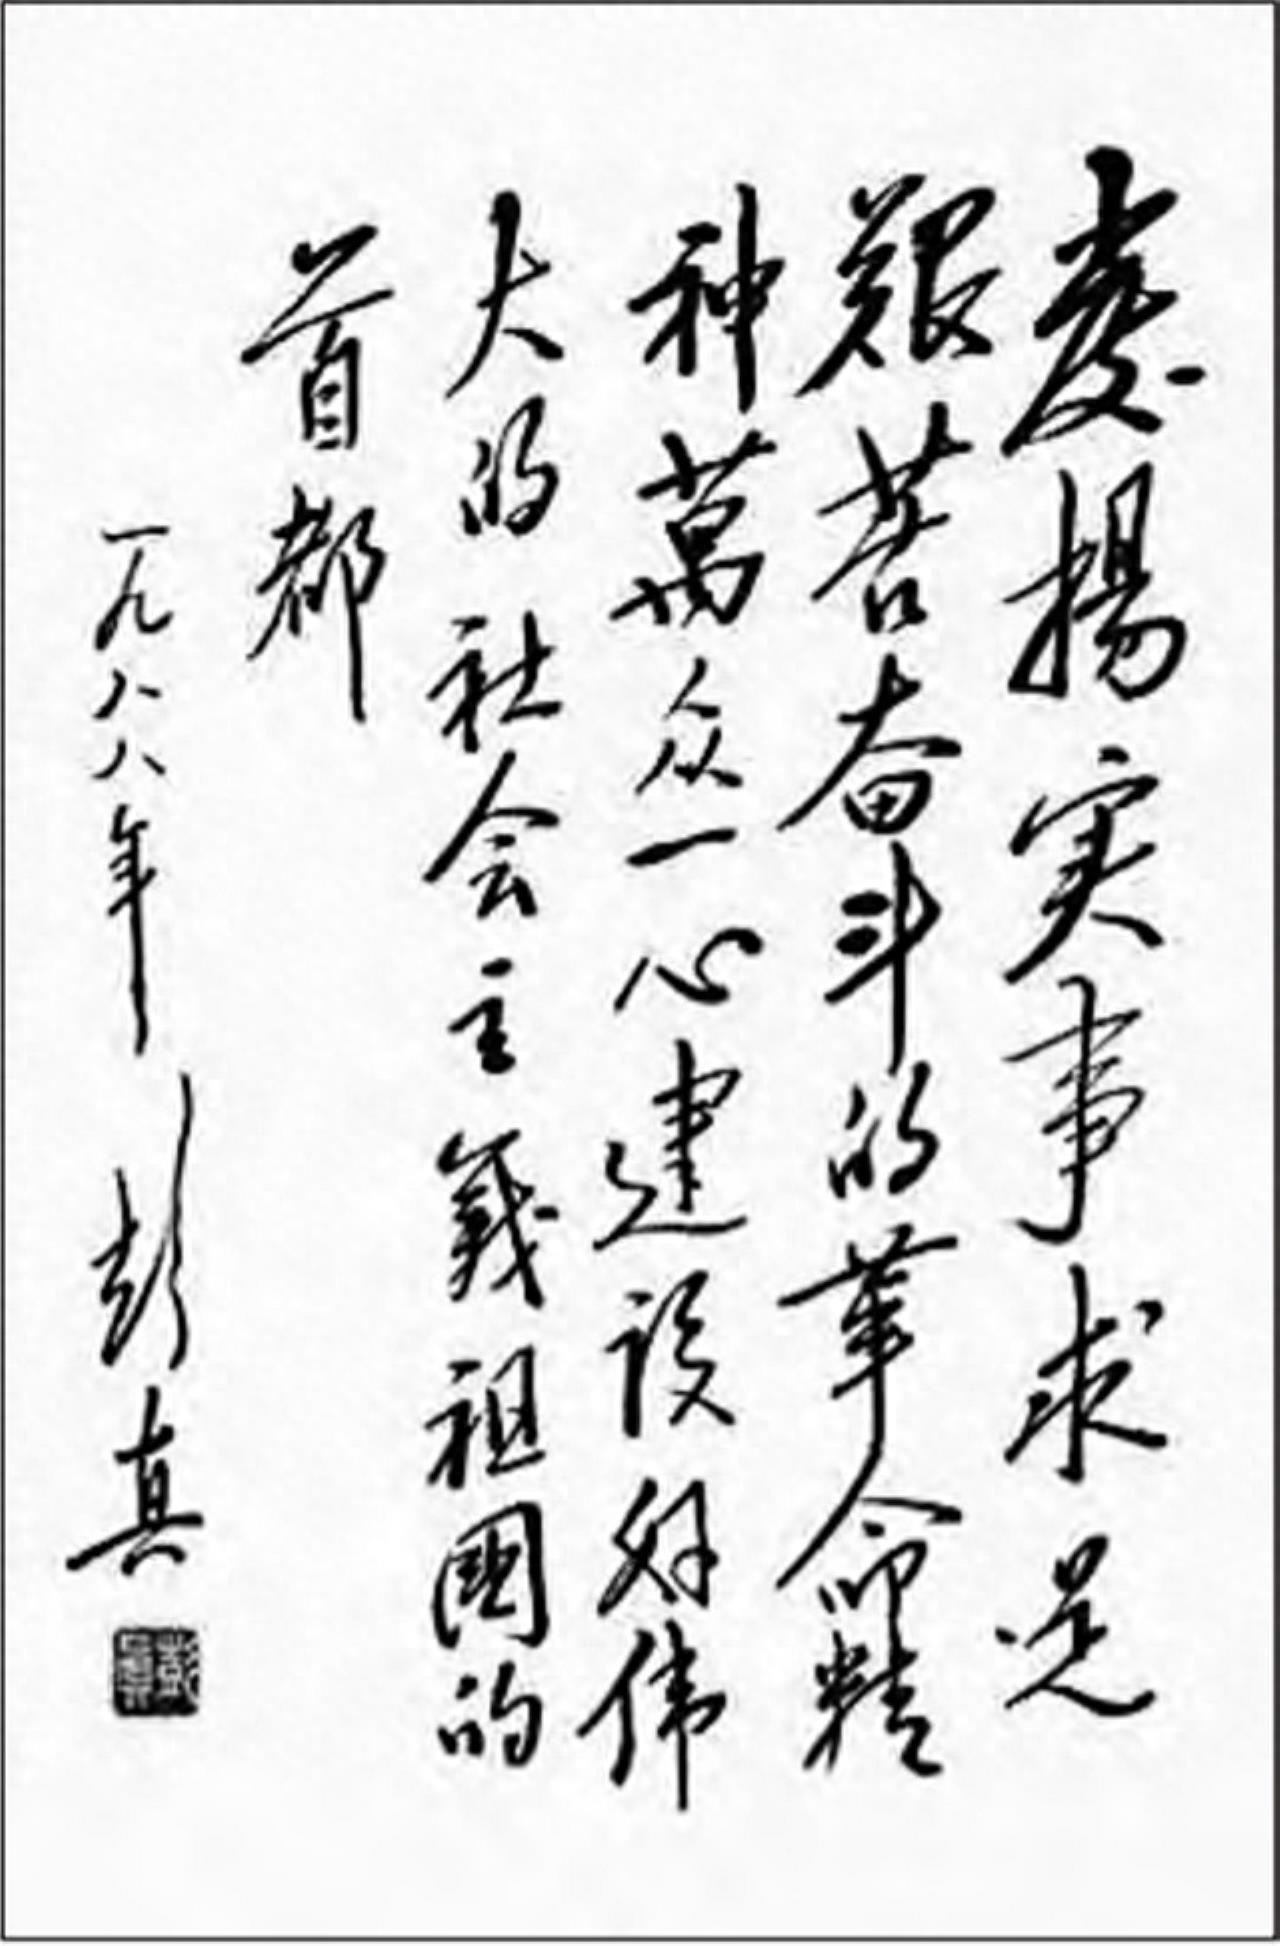 发揚实事求是
艰苦奋斗的革命精
神萬众一心建设好伟
大的社会主義祖國的
首都
一九八八年 彭真
彭真